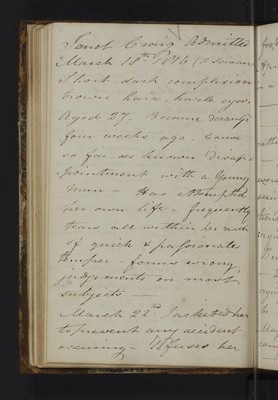 Janet Craig Admitted
March 18th 1816 (a servant
Short dark complexion
brown hair, hazle eyes
Aged 27. Became deranged
four weeks ago. Cause
so far as known Disap-
pointment with a Young
man - Has attempted
her own life - frequently
tears all within her reach
of quick & passionate
temper - forms wrong
judgements on most
subjects -
March 22nd Jacketed her
to prevent any accident
occuring - Refuses her